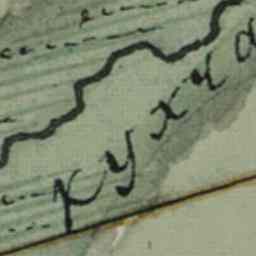 Кухча